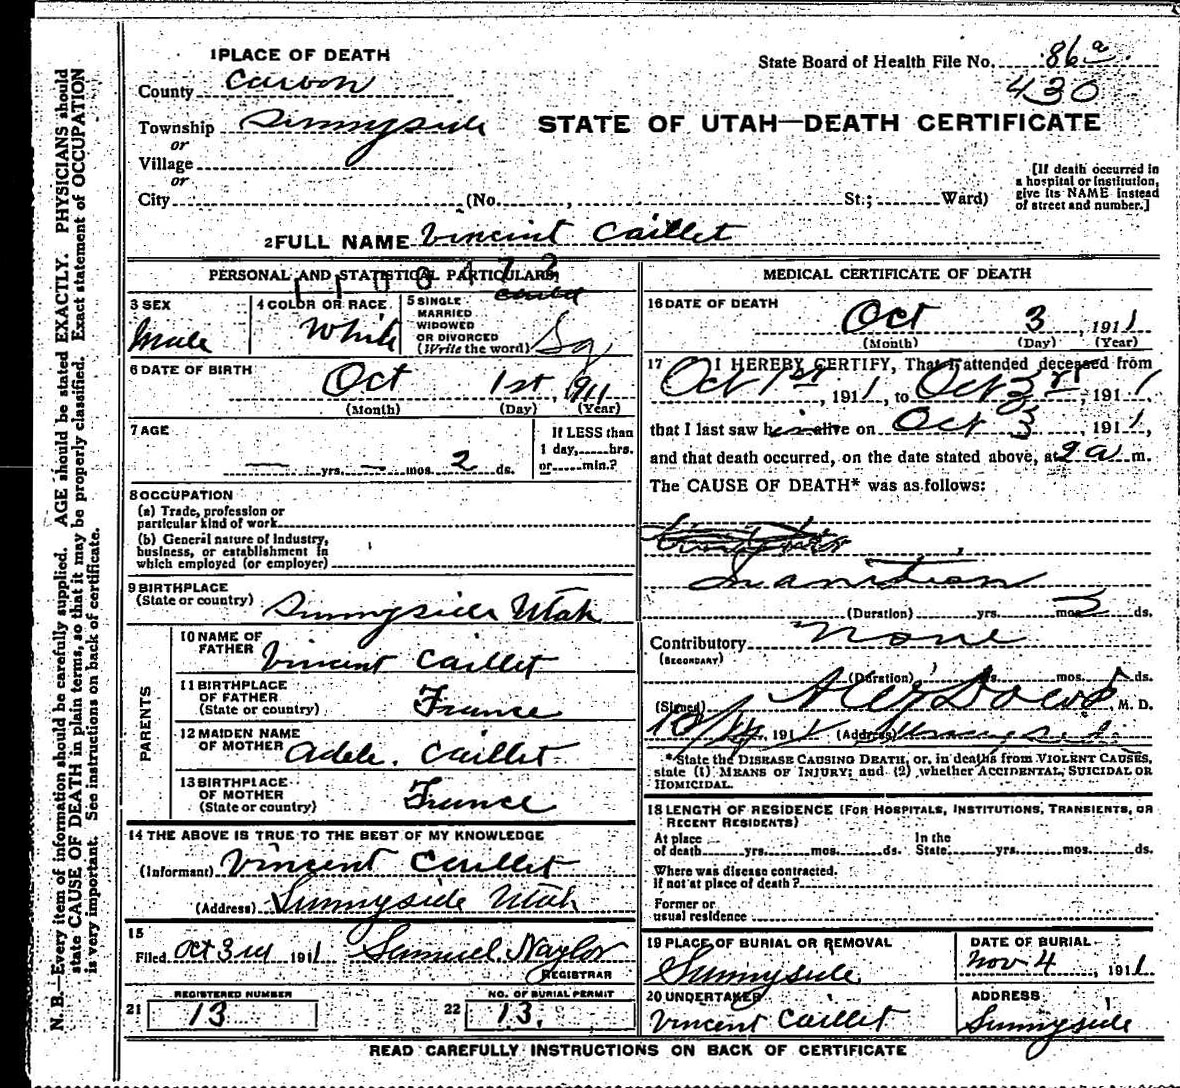 N. B.—Every item of information should be carefully supplied. AGE should be stated EXACTLY. PHYSICIANS should
state CAUSE OF DEATH in plain terms, so that it may be properly classified. Exact statement of OCCUPATION
is very important. See instructions on back of certificate.
1 PLACE OF DEATH
County Carbon
Township Sunnyside
or
Village
or
City (No. , St.; Ward)
State Board of Health File No. 86a
430
STATE OF UTAH—DEATH CERTIFICATE
[If death occurred in
a hospital or institution,
give its NAME instead
of street and number.]
2 FULL NAME Vincent Caillet
PERSONAL AND STATISTICAL PARTICULARS
3 SEX
Male
4 COLOR OR RACE
White
5 SINGLE
MARRIED
WIDOWED
OR DIVORCED
(Write the word)
child
Sg
6 DATE OF BIRTH
Oct 1st, 1911
(Month) (Day) (Year)
7 AGE
— yrs. — mos. 2 ds.
If LESS than
1 day, hrs.
or min.?
8 OCCUPATION
(a) Trade, profession or
particular kind of work
(b) General nature of industry,
business, or establishment in
which employed (or employer)
9 BIRTHPLACE
(State or country) Sunnyside Utah
PARENTS
10 NAME OF
FATHER Vincent Caillet
11 BIRTHPLACE
OF FATHER
(State or country) France
12 MAIDEN NAME
OF MOTHER Adele Caillet
13 BIRTHPLACE
OF MOTHER
(State or country) France
14 THE ABOVE IS TRUE TO THE BEST OF MY KNOWLEDGE
(Informant) Vincent Caillet
(Address) Sunnyside Utah
15
Filed Oct 3rd 1911 Samuel Naylor
REGISTRAR
21 REGISTERED NUMBER
13
22 NO. OF BURIAL PERMIT
13.
MEDICAL CERTIFICATE OF DEATH
16 DATE OF DEATH
Oct 3, 1911
(Month) (Day) (Year)
17 I HEREBY CERTIFY, That I attended deceased from
Oct 1st, 1911, to Oct 3rd, 1911,
that I last saw him alive on Oct 3, 1911,
and that death occurred, on the date stated above, at 9 a m.
The CAUSE OF DEATH* was as follows:
Inanition
(Duration) yrs. mos. 3 ds.
Contributory None
(SECONDARY)
(Duration) yrs. mos. ds.
(Signed) Dowd, M. D.
191 (Address) Sunnyside
*State the DISEASE CAUSING DEATH, or, in deaths from VIOLENT CAUSES,
state (1) MEANS OF INJURY; and (2) whether ACCIDENTAL, SUICIDAL OR
HOMICIDAL.
18 LENGTH OF RESIDENCE (FOR HOSPITALS, INSTITUTIONS, TRANSIENTS, OR
RECENT RESIDENTS)
At place In the
of death yrs. mos. ds. State yrs. mos. ds.
Where was disease contracted.
If not at place of death?
Former or
usual residence
19 PLACE OF BURIAL OR REMOVAL
Sunnyside
DATE OF BURIAL
Nov 4, 1911
20 UNDERTAKER
Vincent Caillet
ADDRESS
Sunnyside
READ CAREFULLY INSTRUCTIONS ON BACK OF CERTIFICATE